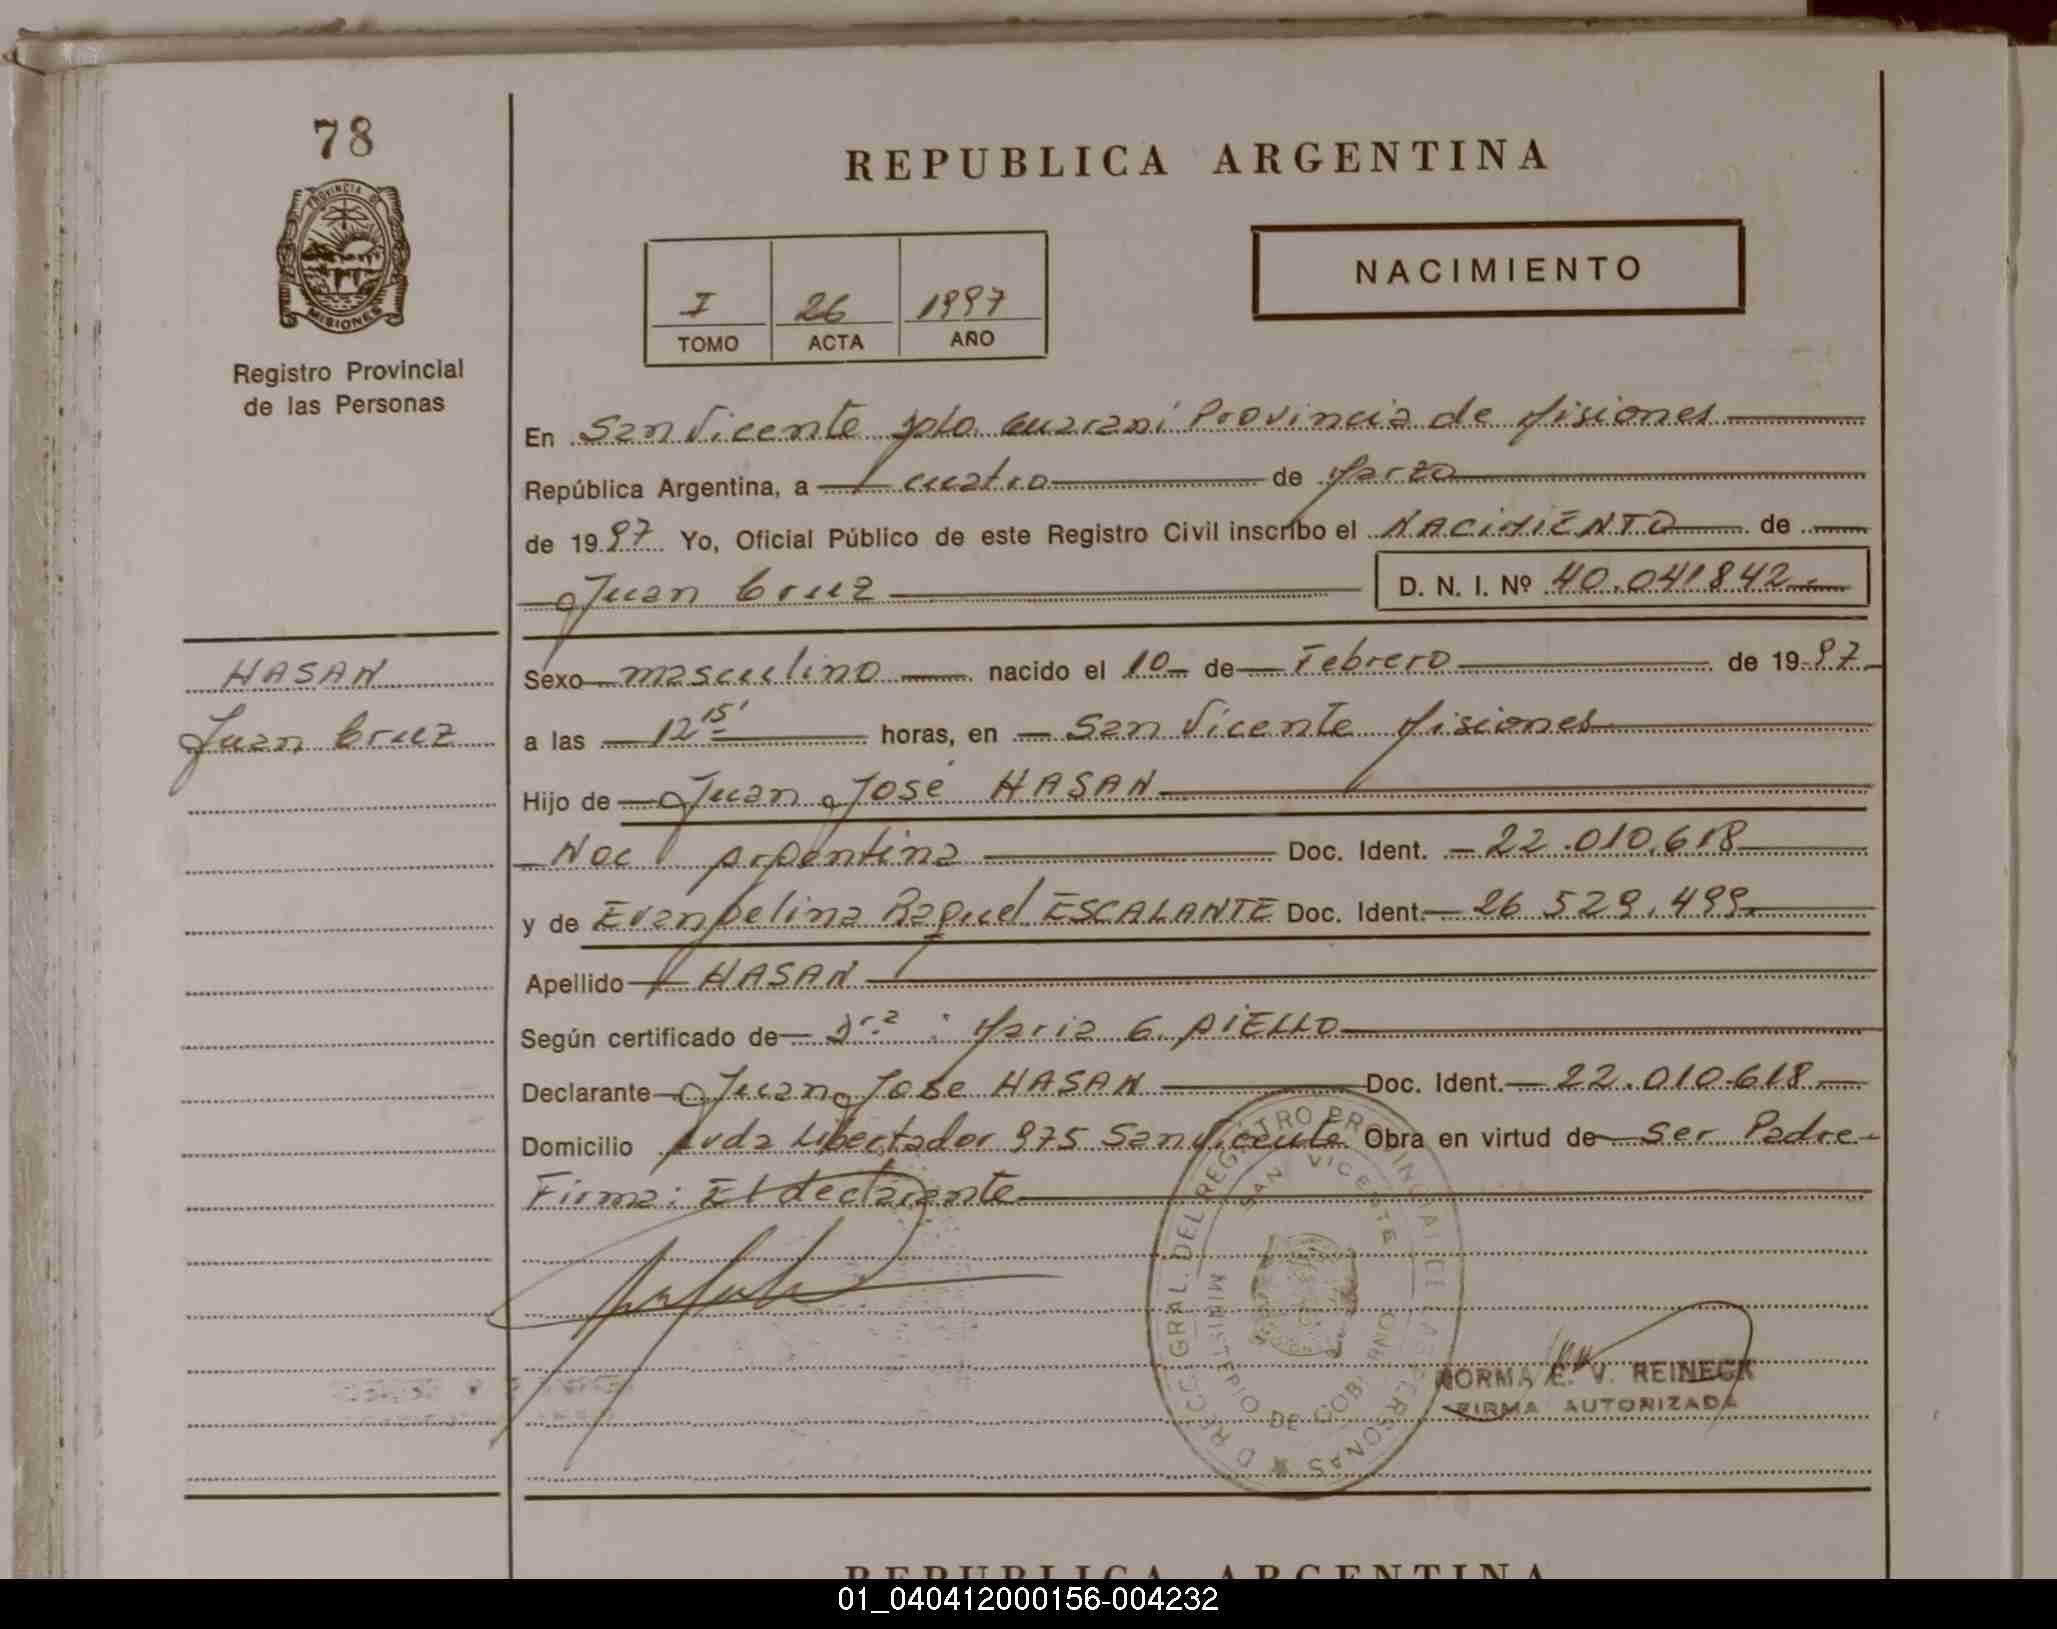 78
REPUBLICA ARGENTINA
PROVINCIA DE
MISIONES
Registro Provincial
de las Personas
I 26 1997
TOMO ACTA AÑO
NACIMIENTO
En San Vicente Dpto. Guaraní Provincia de Misiones
República Argentina, a cuatro de Marzo
de 1997 Yo, Oficial Público de este Registro Civil inscribo el NACIMIENTO de
Juan Cruz D. N. I. Nº 40.041842
HASAN
Juan Cruz
Sexo masculino nacido el 10 de Febrero de 1997
a las 12 15' horas, en San Vicente Misiones
Hijo de Juan José HASAN
Nac Argentina Doc. Ident. 22.010.618
y de Evangelina Raquel ESCALANTE Doc. Ident. 26 529.499
Apellido HASAN
Según certificado de Dra: Maria G. AIELLO
Declarante Juan Jose HASAN Doc. Ident. 22.010.618
Domicilio Avda Libertador 975 San Vicente Obra en virtud de Ser Padre
Firma: El declarante
DIRECC. GRAL. DEL REGISTRO PROVINCIAL DE LAS PERSONAS
SAN VICENTE
MINISTERIO DE GOB.
NORMA E. V. REINECK
FIRMA AUTORIZADA
REPUBLICA ARGENTINA
01_040412000156-004232